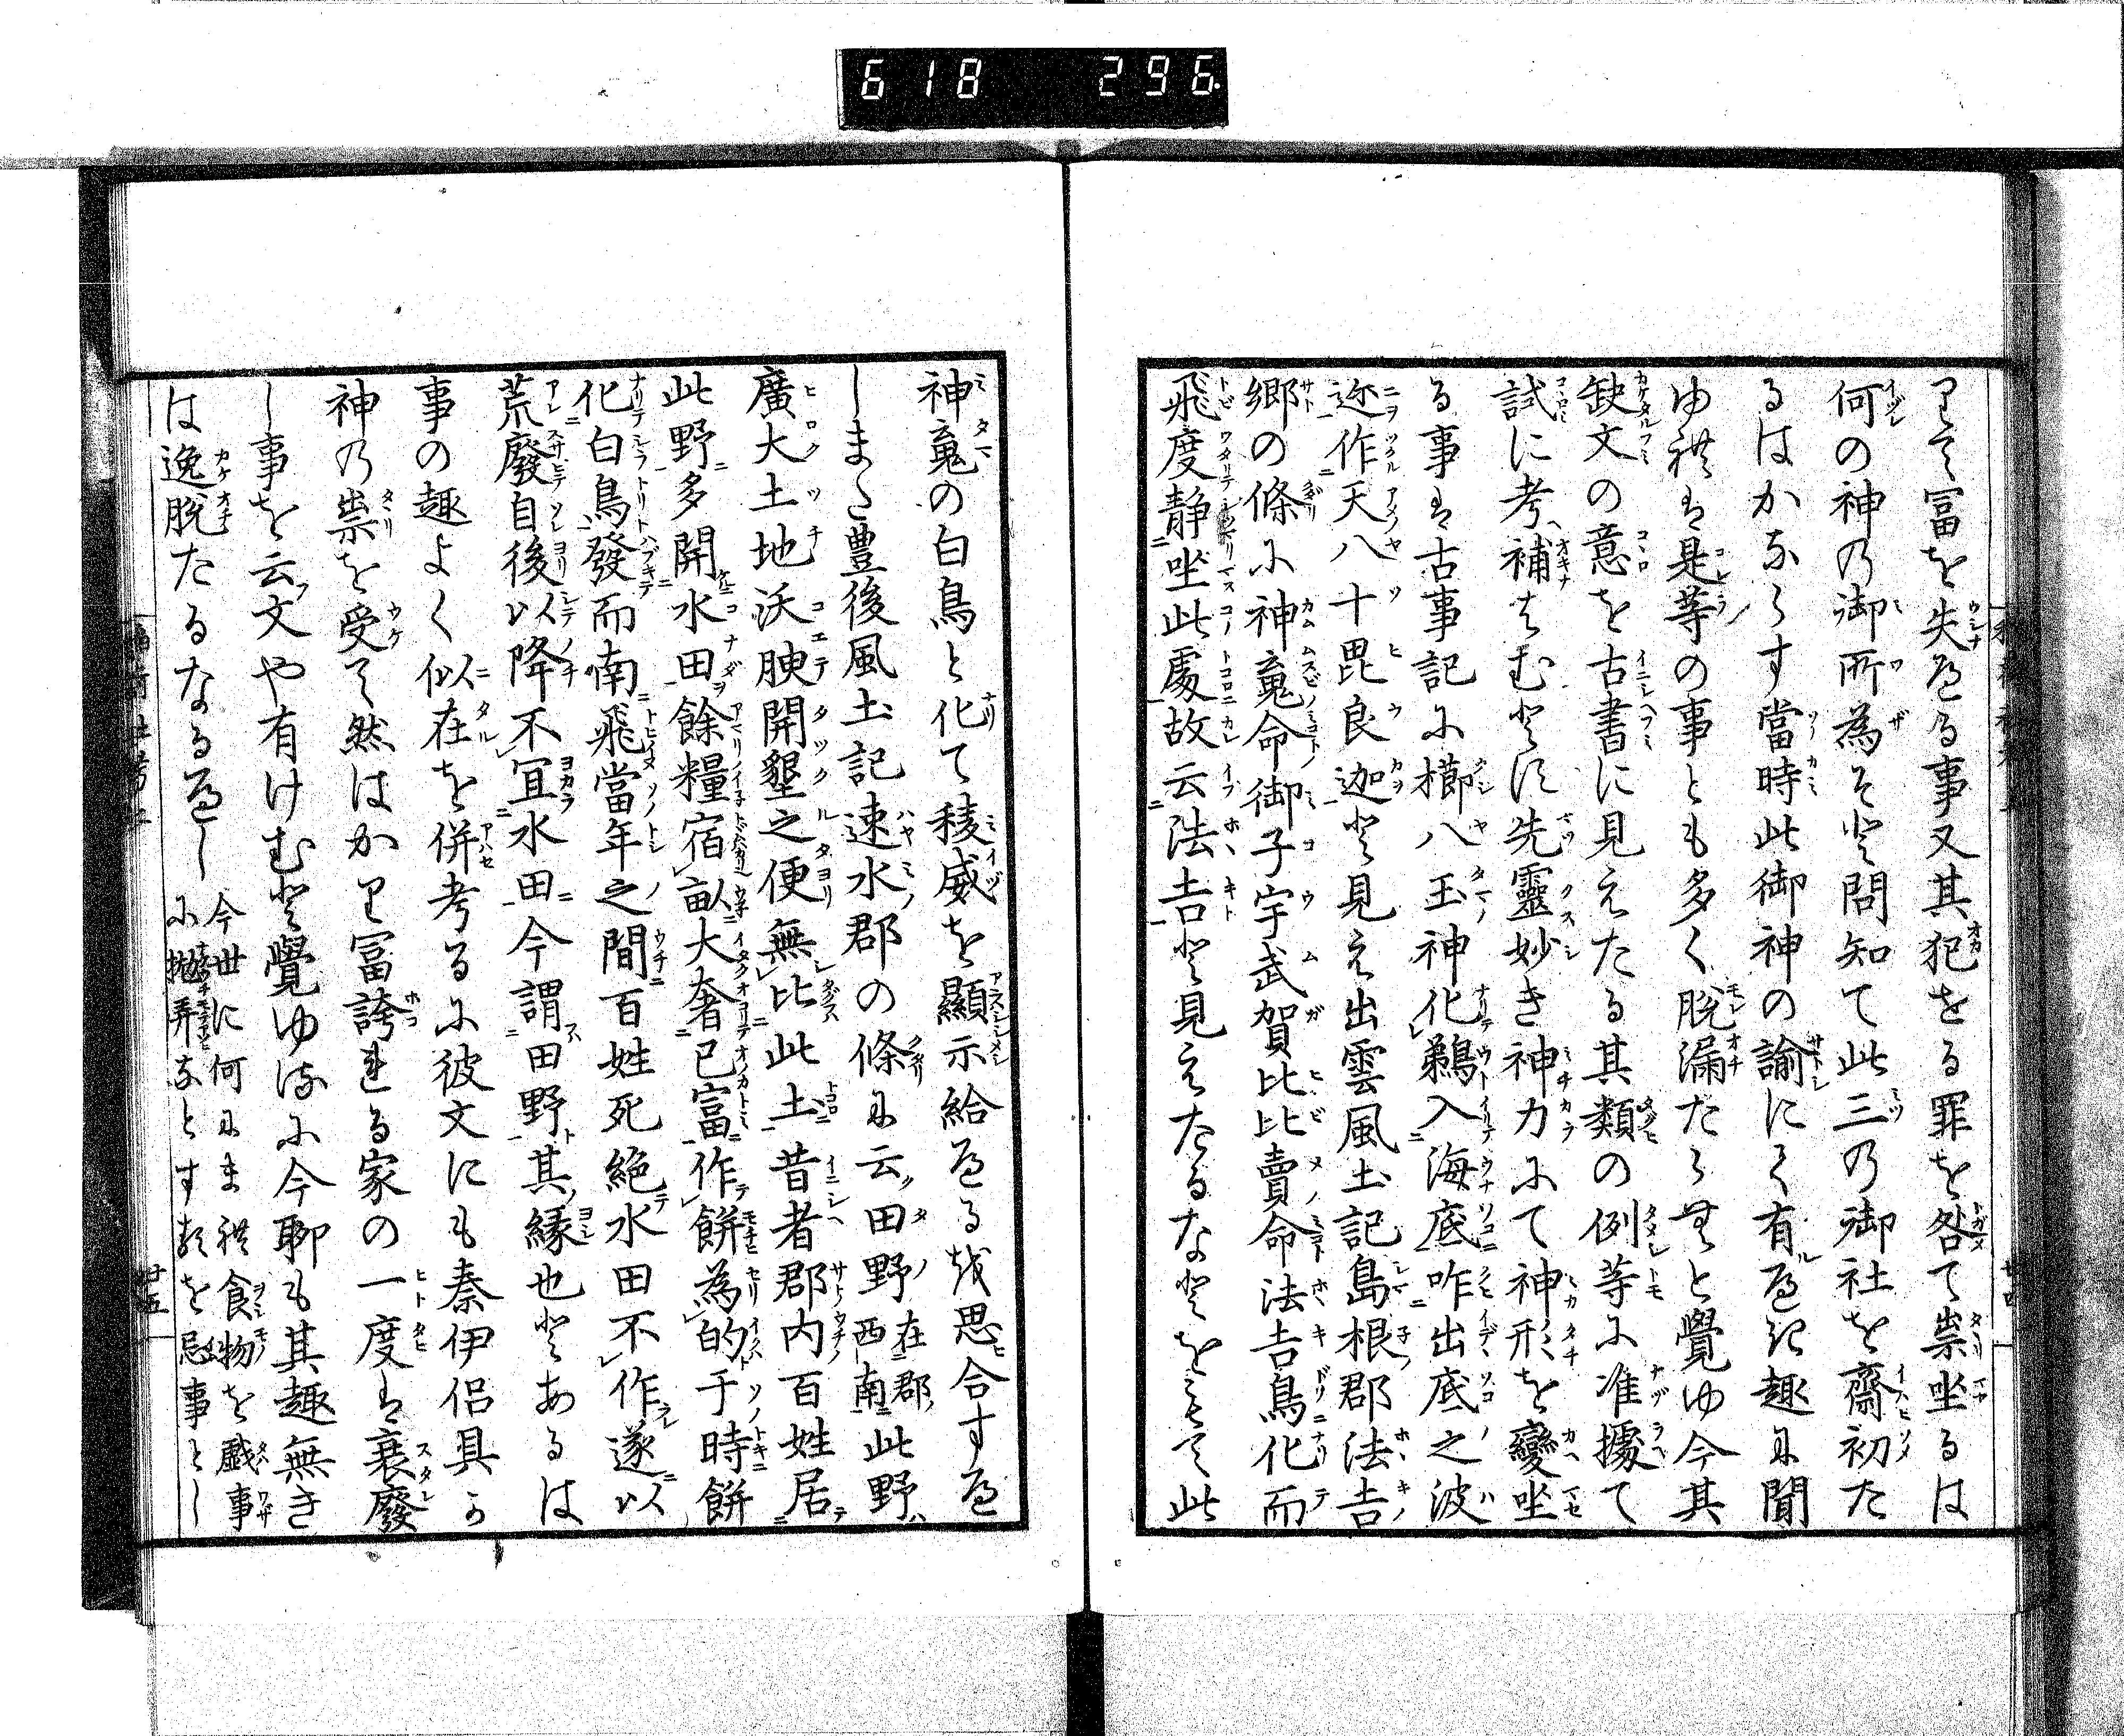 618 296
りて冨を失へる事又其犯せる罪を咎て祟坐るは
何の神の御所為そと問知て此三の御社を齋初た
るはかならす當時此御神の諭にて有へき趣に聞
ゆ然れは是等の事とも多く脱漏たらむと覺ゆ今其
缺文の意を古書に見えたる其類の例等に准擬て
試に考補はむとす先靈妙き神力にて神形を變坐
る事は古事記に櫛八玉神化鵜入海底咋出底之波
迩作天八十毘良迦と見え出雲風土記島根郡法吉
郷の條に神魂命御子宇武賀比比賣命法吉鳥化而
飛度静坐此處故云法吉と見えたるなとをもて此
神魂の白鳥と化て稜威を顯示給へる故思合すへ
しまた豊後風土記速水郡の條に云田野在郡西南此野
廣大土地沃腴開墾之便無比此土昔者郡内百姓居
此野多開水田餘糧宿畝大奢已富作餅為的于時餅
化白鳥發而南飛當年之間百姓死絶水田不作遂以
荒廢自後以降不宜水田今謂田野其縁也とあるは
事の趣よく似在を併考るに彼文にも秦伊侶具か
神の祟を受て然はかり冨誇れる家の一度は衰廢
し事を云文や有けむと覺ゆるに今聊も其趣無き
は逸脱たるなるへし今世に何にまれ食物を戯事
に抛弄なとす類を忌事とし
廿五